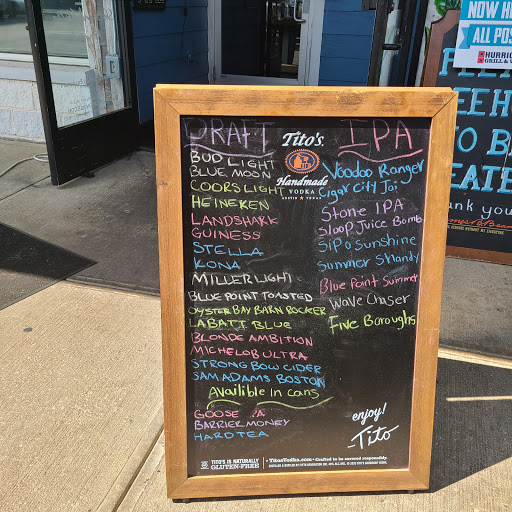 NOW H
ALL POS
HURRIC
GRILL & W
EEH
O B
EATE
ank you
DRAFT
BUD LIGHT
BLUE MOON
COORS LIGHT
HEINEKEN
LANDSHARK
GUINESS
STELLA
KONA
MILLER LIGHT
BLUE POINT TOASTED
OYSTER BAY BARN ROCKER
LABATT BLUE
BLONDE AMBITION
MICHELOB ULTRA
STRONG BOW CIDER
SAM ADAMS BOSTON
Availible in cans
GOOSE
BARRIER MONEY
HARD TEA
Tito's
Handmade
VODKA
AUSTIN TEXAS
IPA
Voodoo Ranger
Cigar City Jai
Stone IPA
Sloop Juice Bomb
SiPo Sunshine
Summer Shandy
Blue Point Summer
Wave Chaser
Five Boroughs
enjoy!
-Tito
TITO'S IS NATURALLY
GLUTEN-FREE
• TitosVodka.com • Crafted to be savored responsibly.